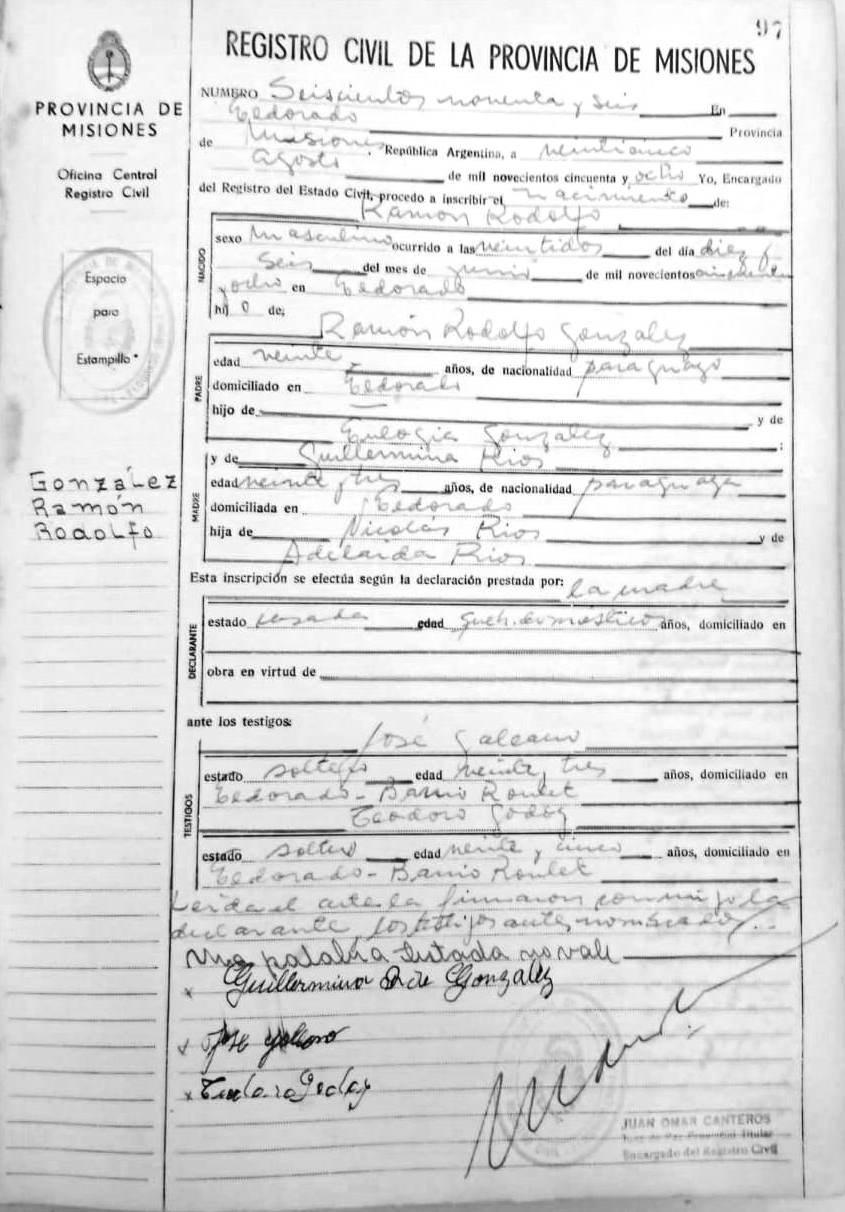 97
REGISTRO CIVIL DE LA PROVINCIA DE MISIONES
PROVINCIA DE
MISIONES
Oficina Central
Registro Civil
Espacio
para
Estampilla
González
Ramón
Rodolfo
NUMERO Seiscientos noventa y seis En
Eldorado Provincia
de Misiones, República Argentina, a veinticinco
agosto de mil novecientos cincuenta y ocho Yo, Encargado
del Registro del Estado Civil, procedo a inscribir el nacimiento de:
Ramón Rodolfo
NACIDO
sexo masculino ocurrido a las veintidos del día diez y
seis del mes de junio de mil novecientos cincuenta
y ocho en Eldorado
hijo de:
Ramón Rodolfo Gonzalez
PADRE
edad veinte años, de nacionalidad paraguayo
domiciliado en Eldorado
hijo de y de
Eulogia Gonzalez ;
MADRE
y de Guillermina Rios
edad veinte y tres años, de nacionalidad paraguaya
domiciliada en Eldorado
hija de Nicolás Rios y de
Adelaida Rios
Esta inscripción se efectúa según la declaración prestada por: la madre
DECLARANTE
estado casada edad años, domiciliado en
obra en virtud de
ante los testigos:
José Galeano
TESTIGOS
estado soltero edad veinte y tres años, domiciliado en
Eldorado - Barrio Roulet
Teodoro Godoy
estado soltero edad veinte y cinco años, domiciliado en
Eldorado - Barrio Roulet
Leida el acta la firmaron conmigo la
declarante y los testigos antes nombrados
Una palabra testada no vale
x Guillermina R de Gonzalez
x José Galeano
x Teodoro Godoy
JUAN OMAR CANTEROS
Juez de Paz Provincial Titular
Encargado del Registro Civil